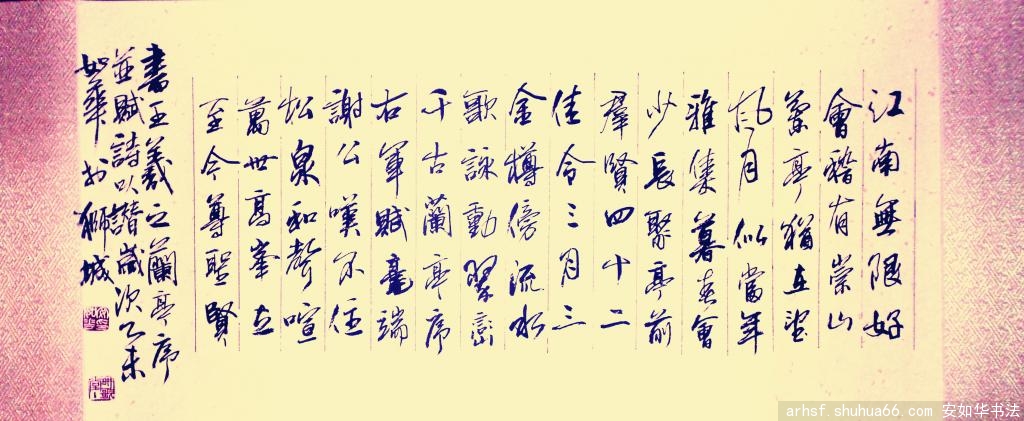 江南無限好
會稽有崇山
蘭亭猶在望
風月似當年
雅集暮春會
少長聚亭前
羣賢四十二
佳令三月三
金樽傍流水
歌詠動翠巒
千古蘭亭序
右軍賦毫端
謝公嘆不住
松泉和聲喧
萬世高峯立
至今尊聖賢
書王羲之蘭亭序
並賦詩以讚歲次乙未
如華於獅城
arhsf.shuhua66.com 安如华书法